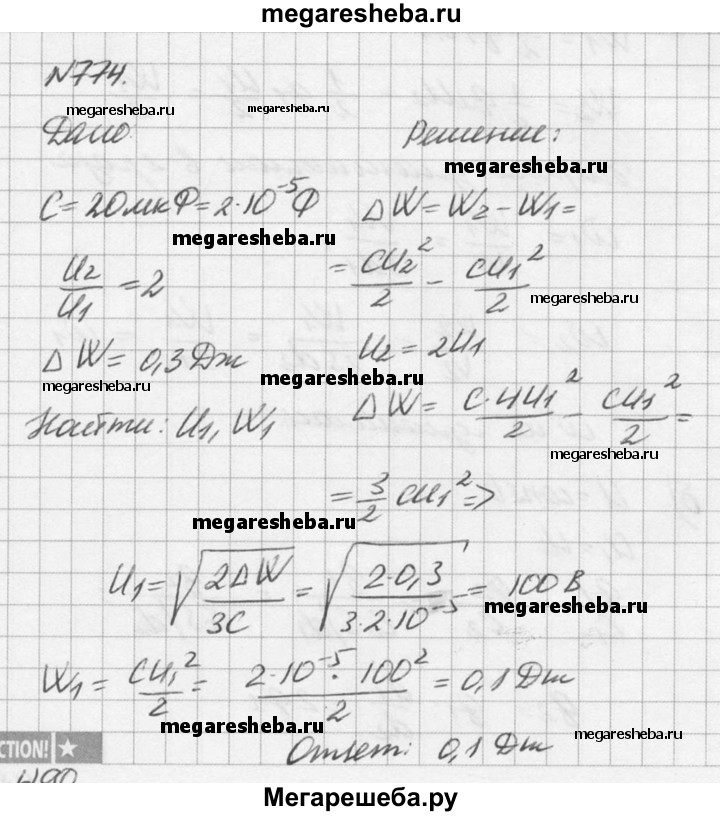 megaresheba.ru
N774.
megaresheba.ru megaresheba.ru
Дано Решение:
megaresheba.ru
C = 20 мкФ = 2·10⁻⁵ Ф ΔW = W₂ – W₁ =
megaresheba.ru
U₂/U₁ = 2 = CU₂²/2 – CU₁²/2
megaresheba.ru
ΔW = 0,3 Дж U₂ = 2U₁
megaresheba.ru megaresheba.ru
Найти: U₁, W₁ ΔW = C·4U₁²/2 – CU₁²/2 =
megaresheba.ru
= 3/2 CU₁² =>
megaresheba.ru
U₁ = √(2ΔW/3C) = √(2·0,3/3·2·10⁻⁵) = 100 В
megaresheba.ru
W₁ = CU₁²/2 = 2·10⁻⁵·100²/2 = 0,1 Дж
megaresheba.ru megaresheba.ru
CTION! Ответ: 0,1 Дж
Мегарешеба.ру